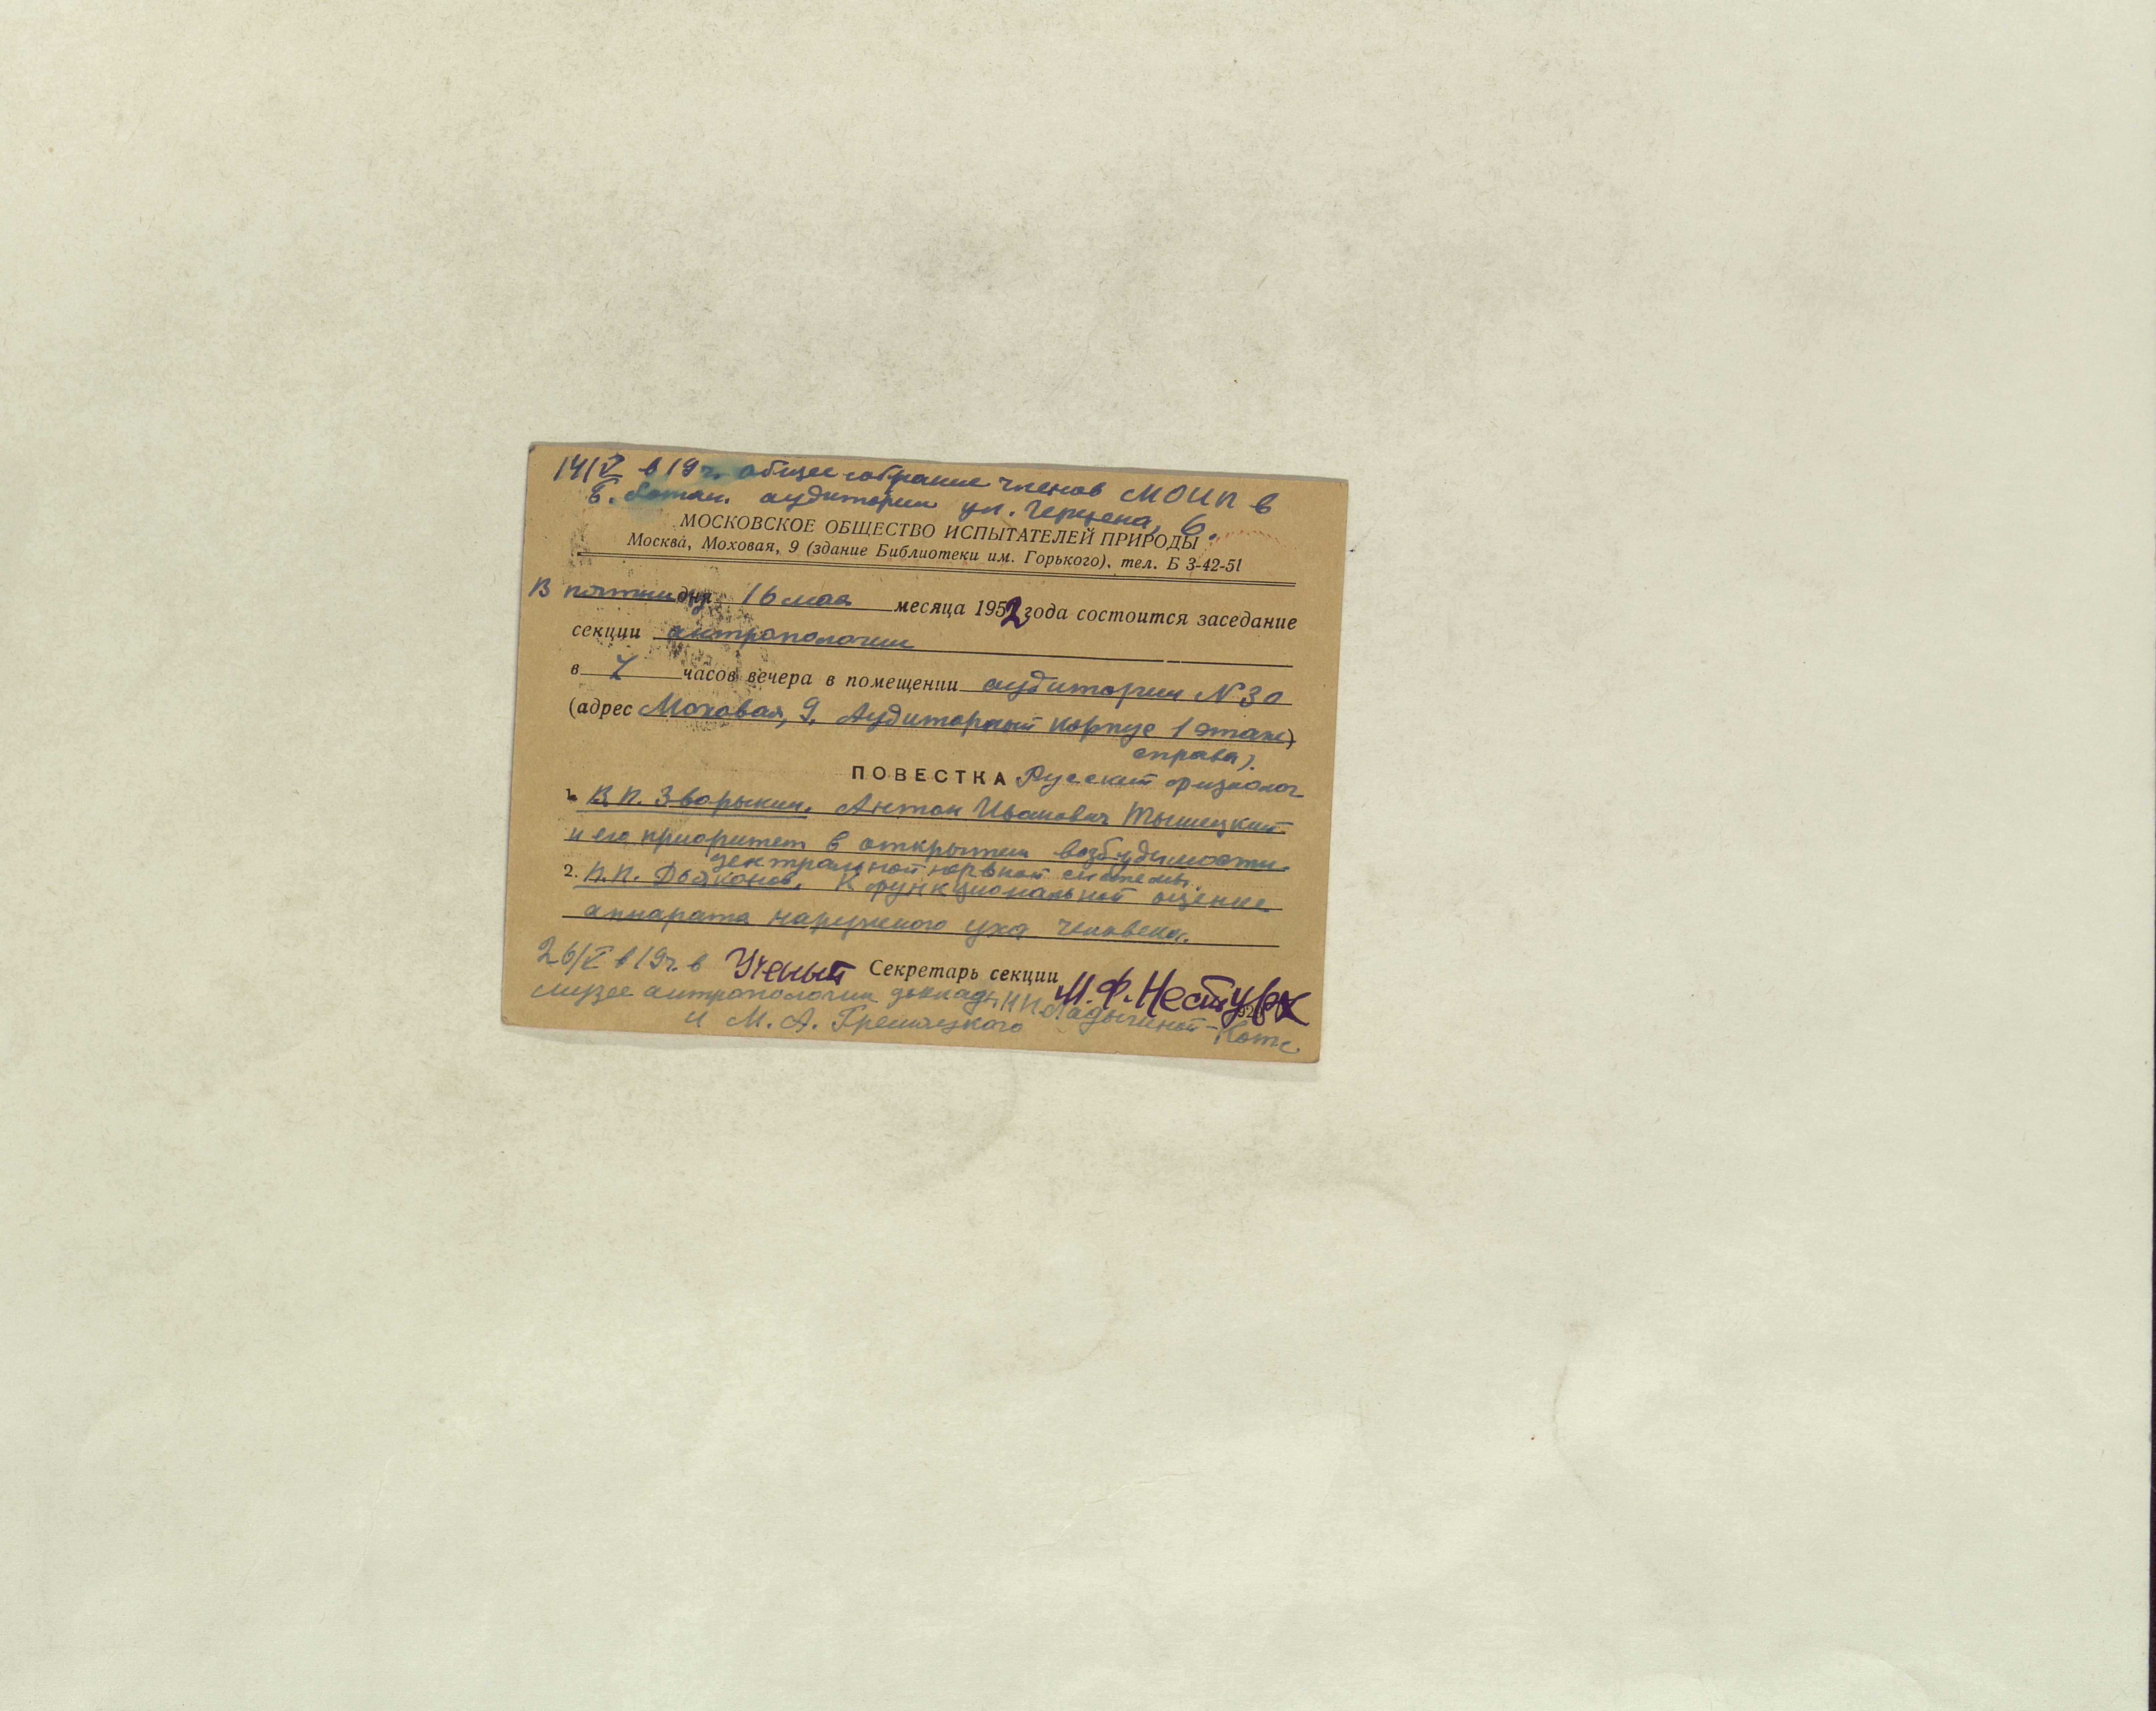 14/V в 19 ч. общее собрание членов МОИП в
Б. Ботан. аудитории ул. Герцена, 6.
МОСКОВСКОЕ ОБЩЕСТВО ИСПЫТАТЕЛЕЙ ПРИРОДЫ
Москва, Моховая, 9 (здание Библиотеки им. Горького), тел. Б 3-42-51
В дня 16 мая месяца 1952 года состоится заседание
секции антропологии
в 7 часов вечера в помещении аудитории N 30
(адрес Моховая, 9. Аудиторный корпус 1 этаж)
справа).
ПОВЕСТКА Русский физиолог
1. В. П. Зворыкин. Антон Иванович Тышецкий
и его приоритет в открытии возбудимости
центральной нервной системы.
2. П. П. Дьяконов. К функциональной оценке
аппарата наружного уха человека.
26/V в 19 ч. в Ученый Секретарь секции М. Ф. Нестурх
музее антропологии доклады Н. Н. Ладыгиной-Котс
и М. А. Гремяцкого